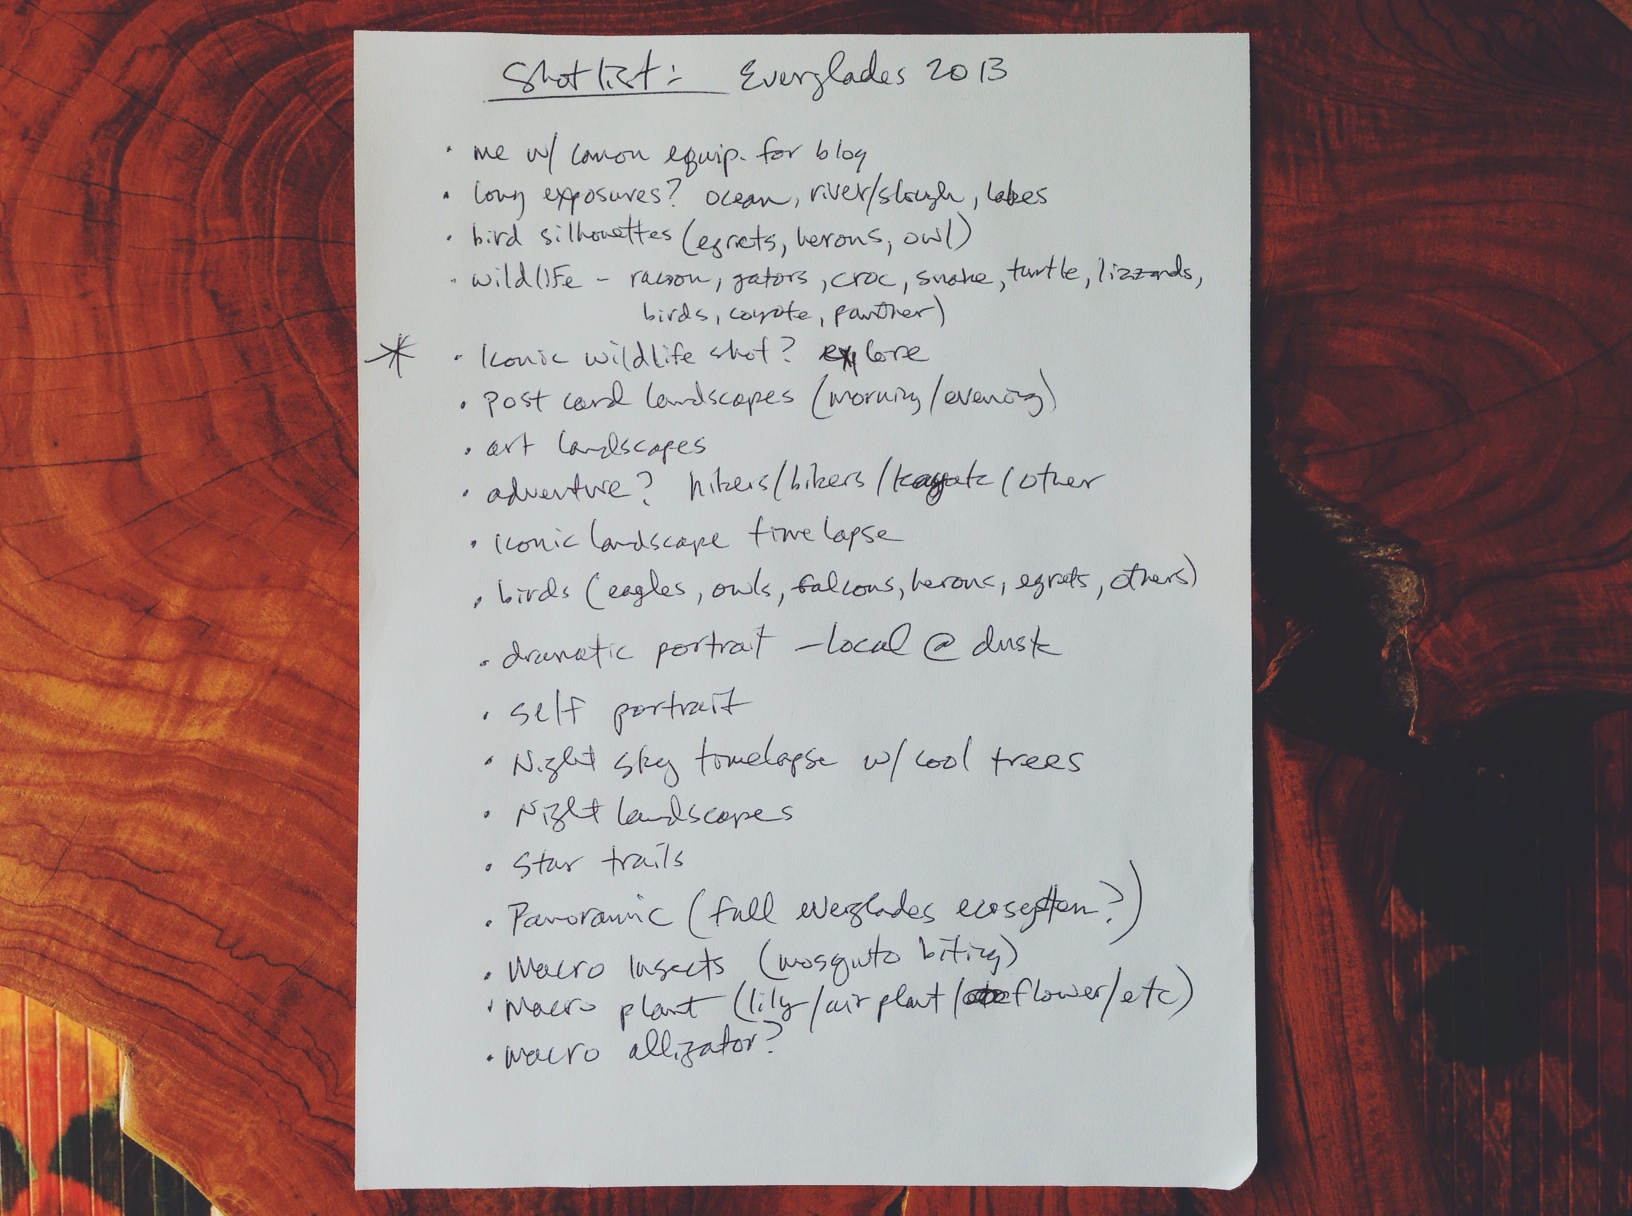 Shot list: Everglades 2013
• me w/ canon equip. for blog
• long exposures? ocean, river/slough, lakes
• bird silhouettes (egrets, herons, owl)
• wildlife - racoon, gators, croc, snake, turtle, lizzards,
birds, coyote, panther)
* • Iconic wildlife shot? explore
• post card landscapes (morning/evening)
• art landscapes
• adventure? hikers/bikers/kayak/other
• iconic landscape timelapse
• birds (eagles, owls, falcons, herons, egrets, others)
• dramatic portrait - local @ dusk
• self portrait
• Night sky timelapse w/ cool trees
• Night landscapes
• Star trails
• Panoramic (full everglades ecosystem?)
• Macro Insects (mosquito biting)
• Macro plant (lily/air plant/flower/etc)
• macro alligator?